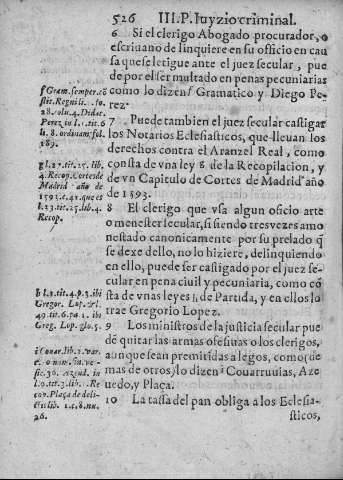 526 III. P. Iuyzio criminal.
6 Si el clerigo Abogado procurador, o
escriuano de linquiere en su officio en cau
sa que se letigue ante el juez secular, pue
de por el ser multado en penas pecuniarias
como lo dizen f Gramatico y Diego Pe-
rez.
7 Puede tambien el juez secular castigar
los Notarios Eclesiasticos, que lleuan los
derechos contra el Aranzel Real, como
consta de vna ley g. de la Recopilacion, y
de vn Capitulo de Cortes de Madrid año
de 1593.
8 El clerigo que vsa algun oficio arte
o menester secular, si siendo tres vezes amo
nestado canonicamente por su prelado q̃
se dexe dello, no lo hiziere, delinquiendo
en ello, puede ser castigado por el juez se-
cular en pena ciuil y pecuniaria, como cõ
sta de vnas leyes h. de Partida, y en ellos lo
trae Gregorio Lopez.
9 Los ministros de la justicia secular pue
de quitar las armas ofesiuas o los clerigos,
aunque sean premitidas a legos, como (de
mas de otros) lo dizen i Couarruuias, Aze
uedo, y Plaça.
10 La tassa del pan obliga a los Eclesia-
sticos,
f Gram. semper. cõ
stit. Regni li. fo.
28. olu. 4. Didac.
Perez in l. tit. 6
li. 8. ordinam. fol.
189.
g l. 27. tit. 25. lib.
4. Recop. Cortes de
Madrid año de
1593. c. 41. que es
l. 23. tit. 25. lib. 4.
Recop.
h l. tit. 4. p. 3. ibi
Gregor. Lop.
49. tit. 6. pa. 1. ibi
Greg. Lop. glo. 5.
i Couar. lib. 2. var.
c. 20. num. in. ve-
sic. 36. Azeud. in
l. 9. tit. 3. lib. Re
cop. Plaça de deli-
ctis lib. 1. c. 8. nu.
26.